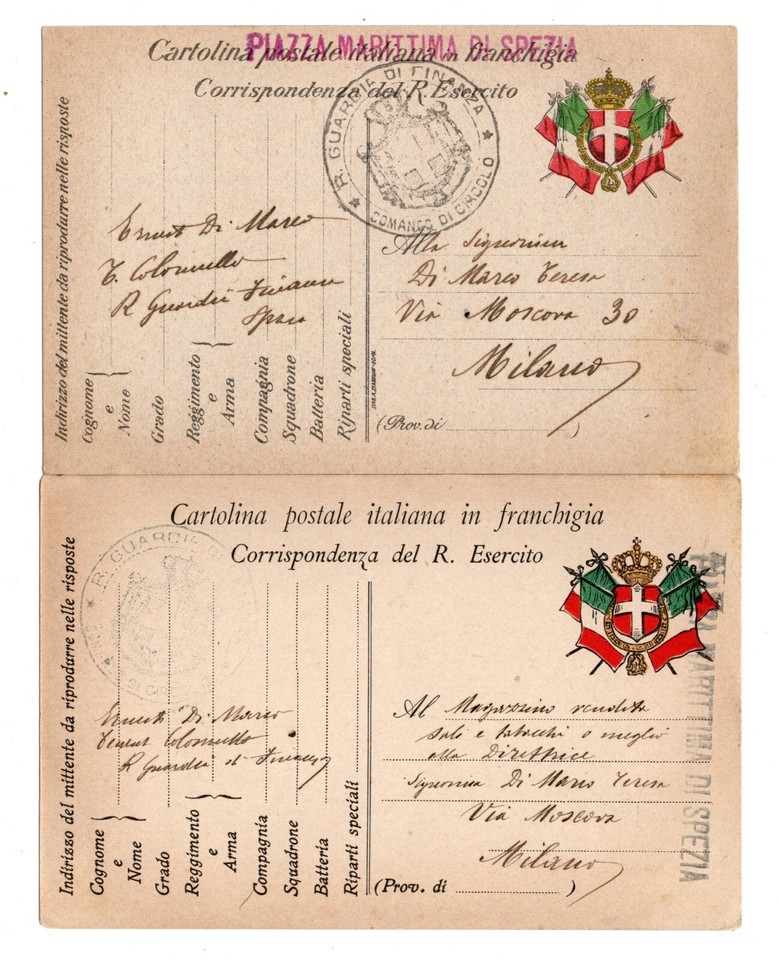 PIAZZA MARITTIMA DI SPEZIA
Cartolina postale italiana in franchigia
Corrispondenza del R. Esercito
R. GUARDIA DI FINANZA
COMANDO DI CIRCOLO
Indirizzo del mittente da riprodurre nelle risposte
Di Marco
T. Colonnello
R Guardia Finanza
Cognome e Nome
Grado
Reggimento e Arma
Compagnia
Squadrone
Batteria
Riparti speciali
Alla Signorina
Di Marco Teresa
Via Moscova 30
Milano
(Prov. di )
Cartolina postale italiana in franchigia
Corrispondenza del R. Esercito
R. GUARDIA DI
PIAZZA MARITTIMA DI SPEZIA
Indirizzo del mittente da riprodurre nelle risposte
Di Marco
Tenent Colonnello
R Guardia di Finanza
Cognome e Nome
Grado
Reggimento e Arma
Compagnia
Squadrone
Batteria
Riparti speciali
Al Magazzino vendita
sali e tabacchi o meglio
alla Direttrice
Signorina Di Marco Teresa
Via Moscova
Milano
(Prov. di )